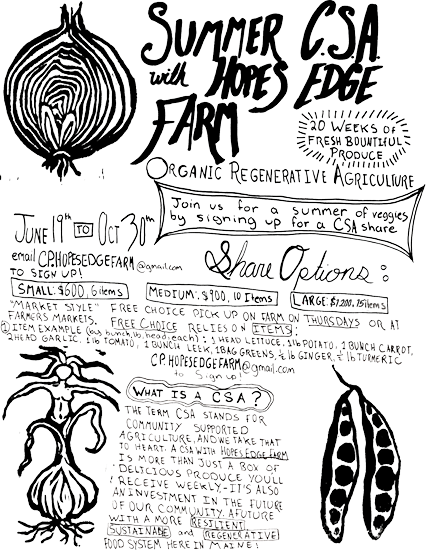 SUMMER C.S.A.
with HOPES EDGE
FARM
20 WEEKS OF
FRESH BOUNTIFUL
PRODUCE
ORGANIC REGENERATIVE AGRICULTURE
Join us for a summer of veggies
by signing up for a CSA share
JUNE 19th TO OCT 30th
email CP.HOPESEDGEFARM@gmail.com
TO SIGN UP!
Share Options:
SMALL: $600, 6 items
MEDIUM: $900, 10 Items
LARGE: $1,200, 15 items
"MARKET STYLE" FREE CHOICE PICK UP ON FARM ON THURSDAYS OR AT
FARMERS MARKETS. FREE CHOICE RELIES ON ITEMS:
ITEM EXAMPLE (bag, bunch, lb, head, each): 1 HEAD LETTUCE, 2 lb POTATO, 1 BUNCH CARROT,
2 HEAD GARLIC, 1 lb TOMATO, 1 BUNCH LEEK, 1 BAG GREENS, ½ lb GINGER, ½ lb TURMERIC
CP.HOPESEDGEFARM@gmail.com
to Sign up!
WHAT IS A CSA?
THE TERM CSA STANDS FOR
COMMUNITY SUPPORTED
AGRICULTURE, AND WE TAKE THAT
TO HEART. A CSA WITH HOPES EDGE FARM
IS MORE THAN JUST A BOX OF
DELICIOUS PRODUCE YOU'LL
RECEIVE WEEKLY - IT'S ALSO
AN INVESTMENT IN THE FUTURE
OF OUR COMMUNITY. A FUTURE
WITH A MORE RESILIENT
SUSTAINABLE and REGENERATIVE
FOOD SYSTEM HERE IN MAINE!